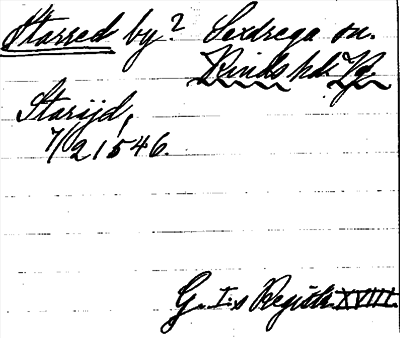 Starred by? Sexdrega sn.
Kinds hd. Vg.
Starijd,
7/12 1546.
G. I:s Registr. XVIII.